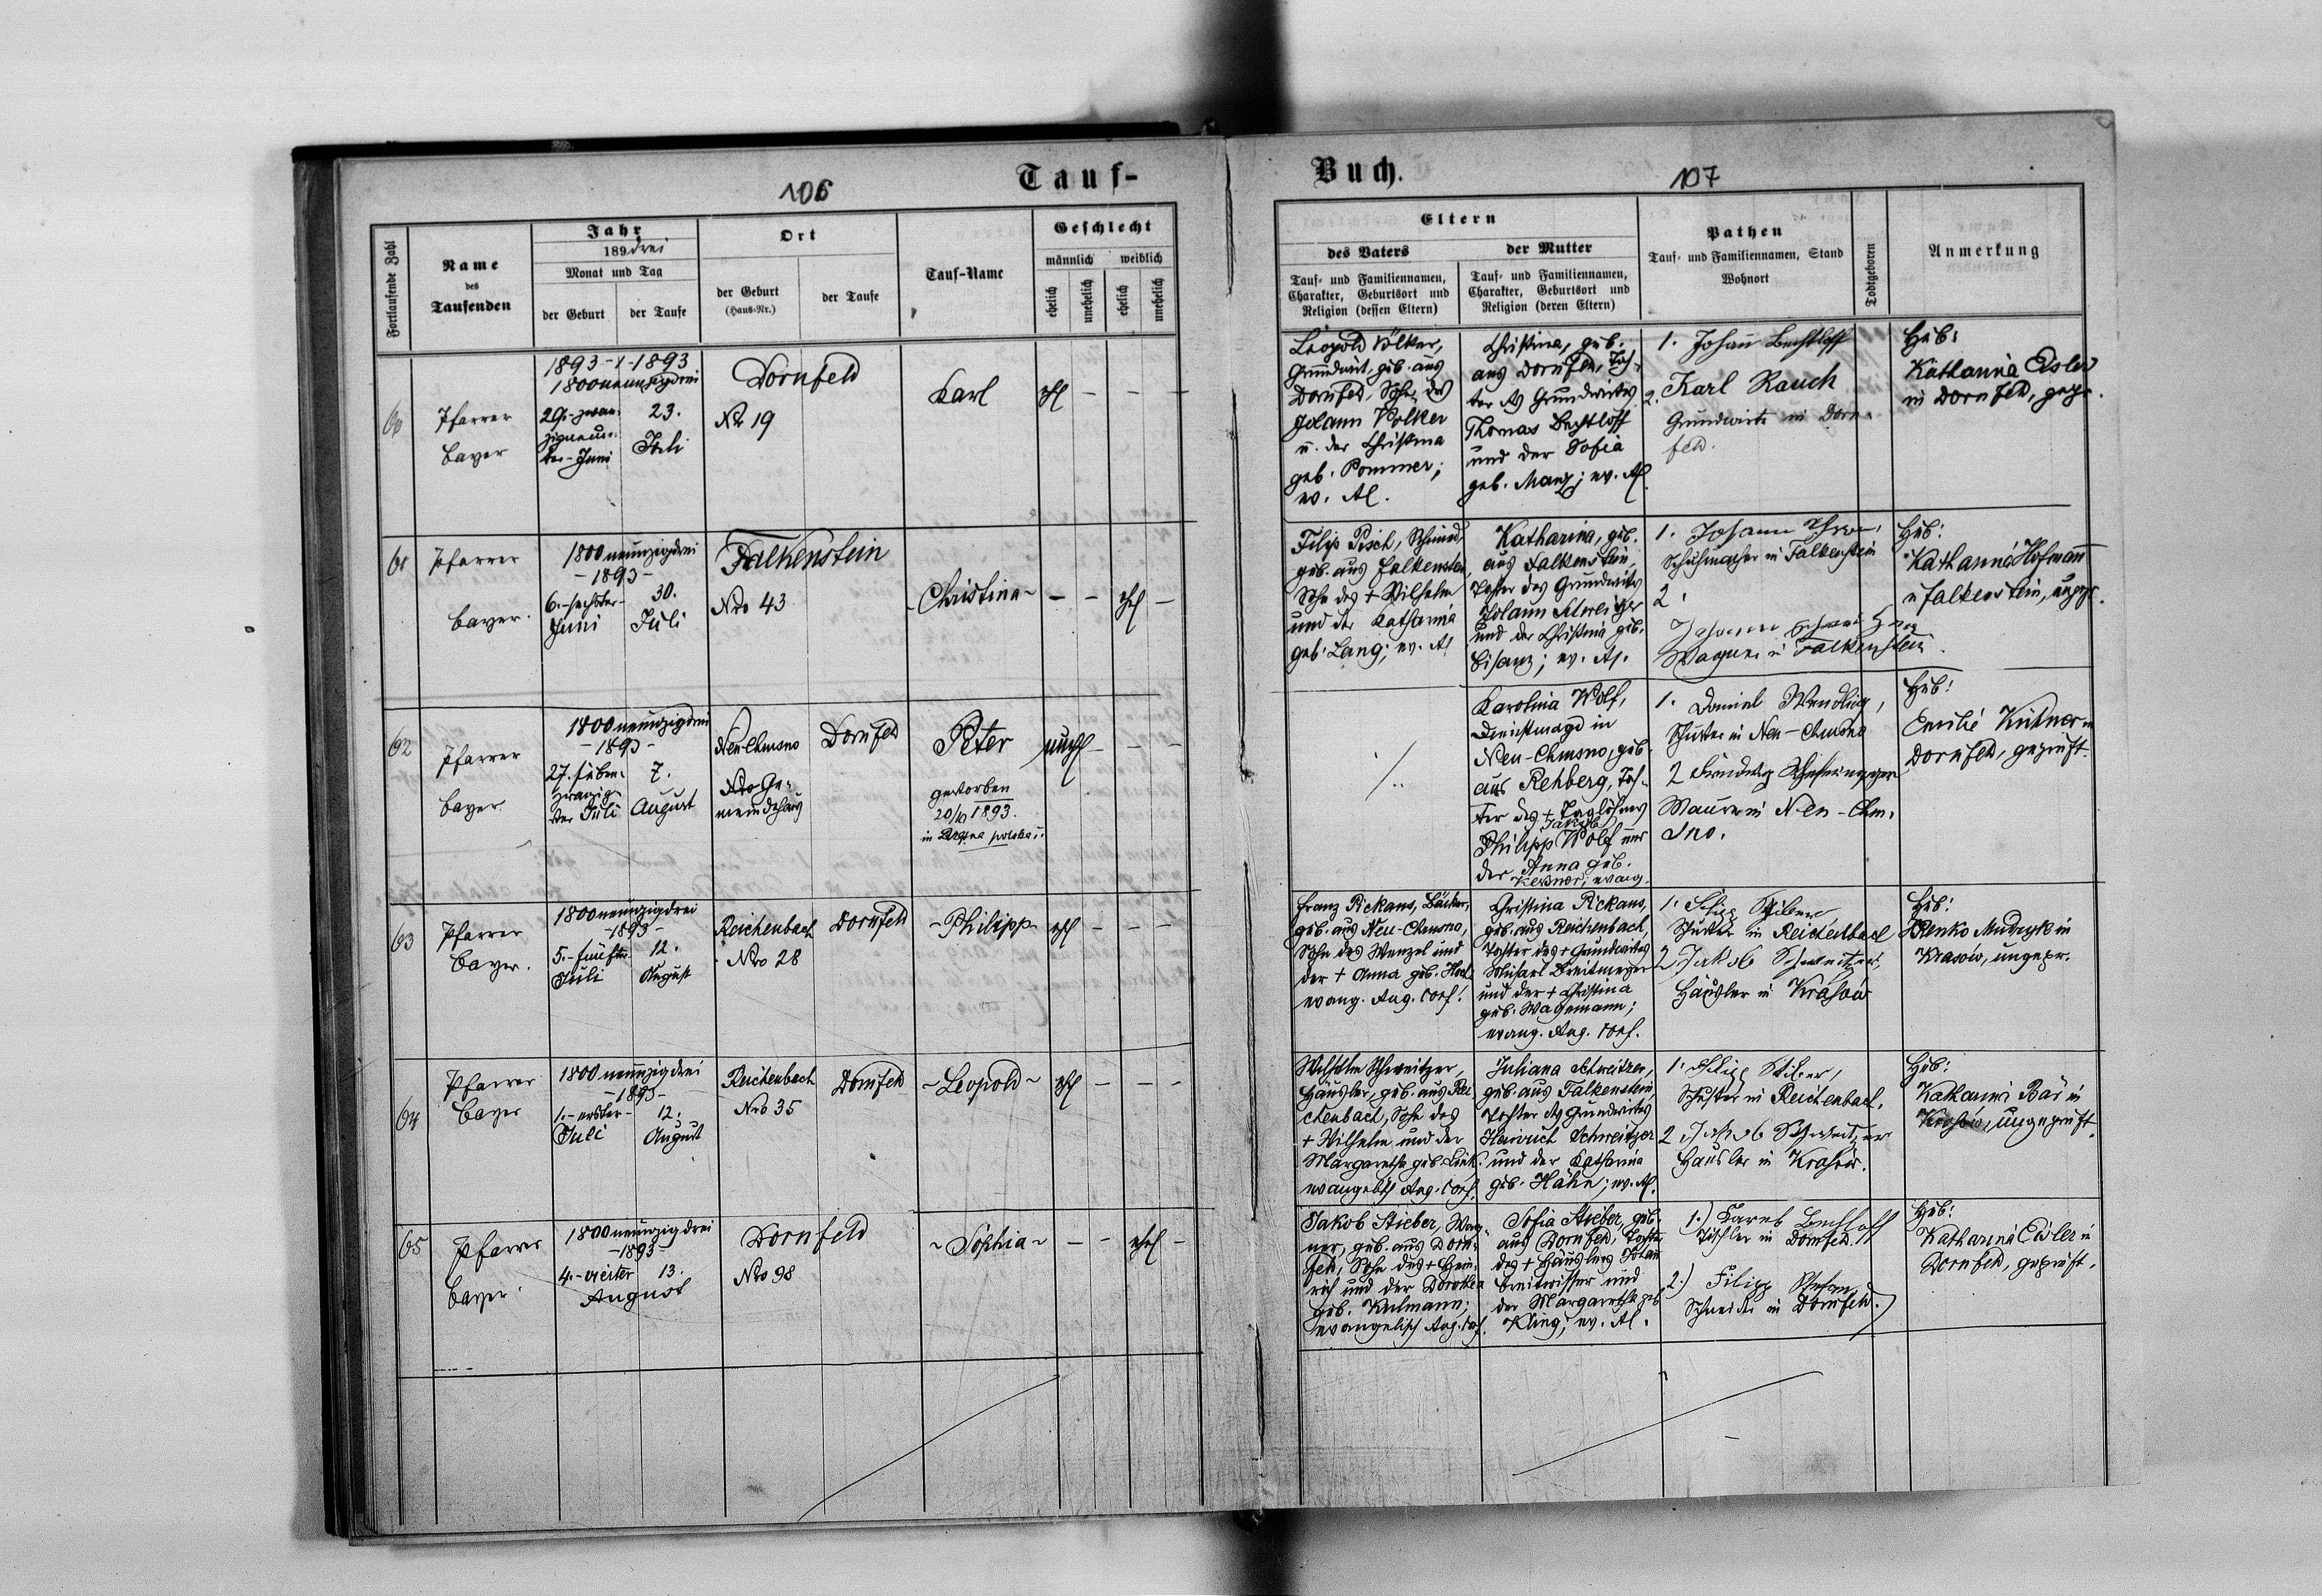 106
Tauf-
Fortlaufende Zahl
Name
des
Taufenden
Jahr
189drei
Monat und Tag
der Geburt
der Taufe
Ort
der Geburt
(Haus-Nr.)
der Taufe
Tauf-Name
Geschlecht
männlich
weiblich
ehelich
unehelich
ehelich
unehelich
60
Pfarrer
Bayer
1893
1893
1800neunzigdrei
29.-zwan-
zigneun-
ter-Juni
23.
Juli
Dornfeld
Nr 19
Karl
ehl
- - -
61
Pfarrer
Bayer.
1800neunzigdrei
-1893-
6.-sechster-
Juni
30.
Juli
Falkenstein
Nro 43
-Christina-
- -
ehl
-
62
Pfarrer
Bayer.
1800neunzigdrei
-1893-
27. sieben-
zwanzig-
ster Juli
7.
August
Neu-Chrusno
Nro Ge-
meindehaus
Dornfeld
Peter
gestorben
20/10 1893.
in polska
unehl
- - -
63
Pfarrer
Bayer.
1800neunzigdrei
-1893-
5.-fünfter
Juli
12.
August
Reichenbach
Nro 28
Dornfeld
-Philipp-
ehl
- - -
64
Pfarrer
Bayer
1800neunzigdrei
-1893-
1.-erster-
Juli
12.
August
Reichenbach
Nro 35
Dornfeld
-Leopold-
ehl
- - -
65
Pfarrer
Bayer.
1800neunzigdrei
-1893-
4.-vierter
13.
August
Dornfeld
Nro 98
-Sophia-
- -
ehel
-
Buch.
107
Eltern
des Vaters
Tauf- und Familiennamen,
Charakter, Geburtsort und
Religion (dessen Eltern)
der Mutter
Tauf- und Familiennamen,
Charakter, Geburtsort und
Religion (deren Eltern)
Pathen
Tauf- und Familiennamen, Stand
Wohnort
Todtgeboren
Anmerkung
Leopold Völker,
Grundwirt, geb. aus
Dornfed, Sohn des
Johann Völker
u. der Christina
geb. Pommer;
ev. Al.
Christina, geb.
aus Dornfeld, Toch-
ter des Grundwirtes
Thomas Bechtloff
und der Sofia
geb. Manz; ev. Al.
1. Johann Bechtloff
2. Karl Rauch
Grundwirte in Dorn-
feld.
Heb:
Katharina Eisler
in Dornfeld, gepr.
Filip Pesch, Schmied,
geb. aus Falkenstein,
Sohn des + Wilhelm
und der Katharina
geb. Lang; ev. Al
Katharina, geb.
aus Falkenstein,
Tochter des Grundwirtes
Johann Schweitzer
und der Christina geb.
Bisanz; ev. Al.
1. Johann
Schuhmacher in Falkenstein
2.
Johann
Wagner in Falkenstein.
Heb:
Katharina Hofmann
in Falkenstein, ungepr.
Karolina Wolf,
Dienstmagd in
Neu-Chrusno, geb.
aus Rehberg, Toch-
ter des + Taglöhners
Jakob
Philipp Wolf und
der Anna geb.
Kessner; evang.
1. Daniel Wendling,
Schuster in Neu-Chrusno
2
Maurer in Neu-Chru-
sno.
Heb:
Emilie Kütner in
Dornfeld, geprüft.
Franz Pickans, Bäcker,
geb. aus Neu-Chrusno,
Sohn des Wenzel und
der + Anna geb.
evang. Aug. Conf.
Christina Pickans,
geb. aus Reichenbach,
Tochter des + Grundwirtes
Michael Breitmeyer
und der + Christina
geb. Wagemann;
evang. Aug. Conf.
1. Filipp Stiber
Schuster in Reichenbach
2 Jakob Schweitzer,
Häusler in Krasów
Heb:
Olenko Mudryk in
Krasów, ungepr.
Wilhelm Schweitzer,
Häusler, geb. aus Rei-
chenbach, Sohn des
+ Wilhelm und der
Margaretha geb. Link.
evangelisch Aug. Conf.
Juliana Schweitzer,
geb. aus Falkenstein,
Tochter des Grundwirtes
Heinrich Schweitzer
und der Katharina
geb. Hahn; ev. Al.
1. Filipp Stiber,
Schuster in Reichenbach.
2 Jakob Schweitzer
Häusler in Krasów.
Heb:
Katharina Bär in
Krasów, ungeprüft.
Jakob Stieber, Wag-
ner, geb. aus Dorn-
feld, Sohn des + Hein-
rich und der Dorothea
geb. Kulmann;
evangelisch Aug. Conf.
Sofia Stieber, geb.
aus Dornfeld, Tochter
des + Häuslers Johann
Breitwisser und
der Margaretha geb
Kling; ev. Al.
1.) Jareb Bechtloff
Tischler in Dornfeld.
2.) Filipp Stefan
Schneider in Dornfeld.
Heb:
Katharina Eisler in
Dornfeld, geprüft.